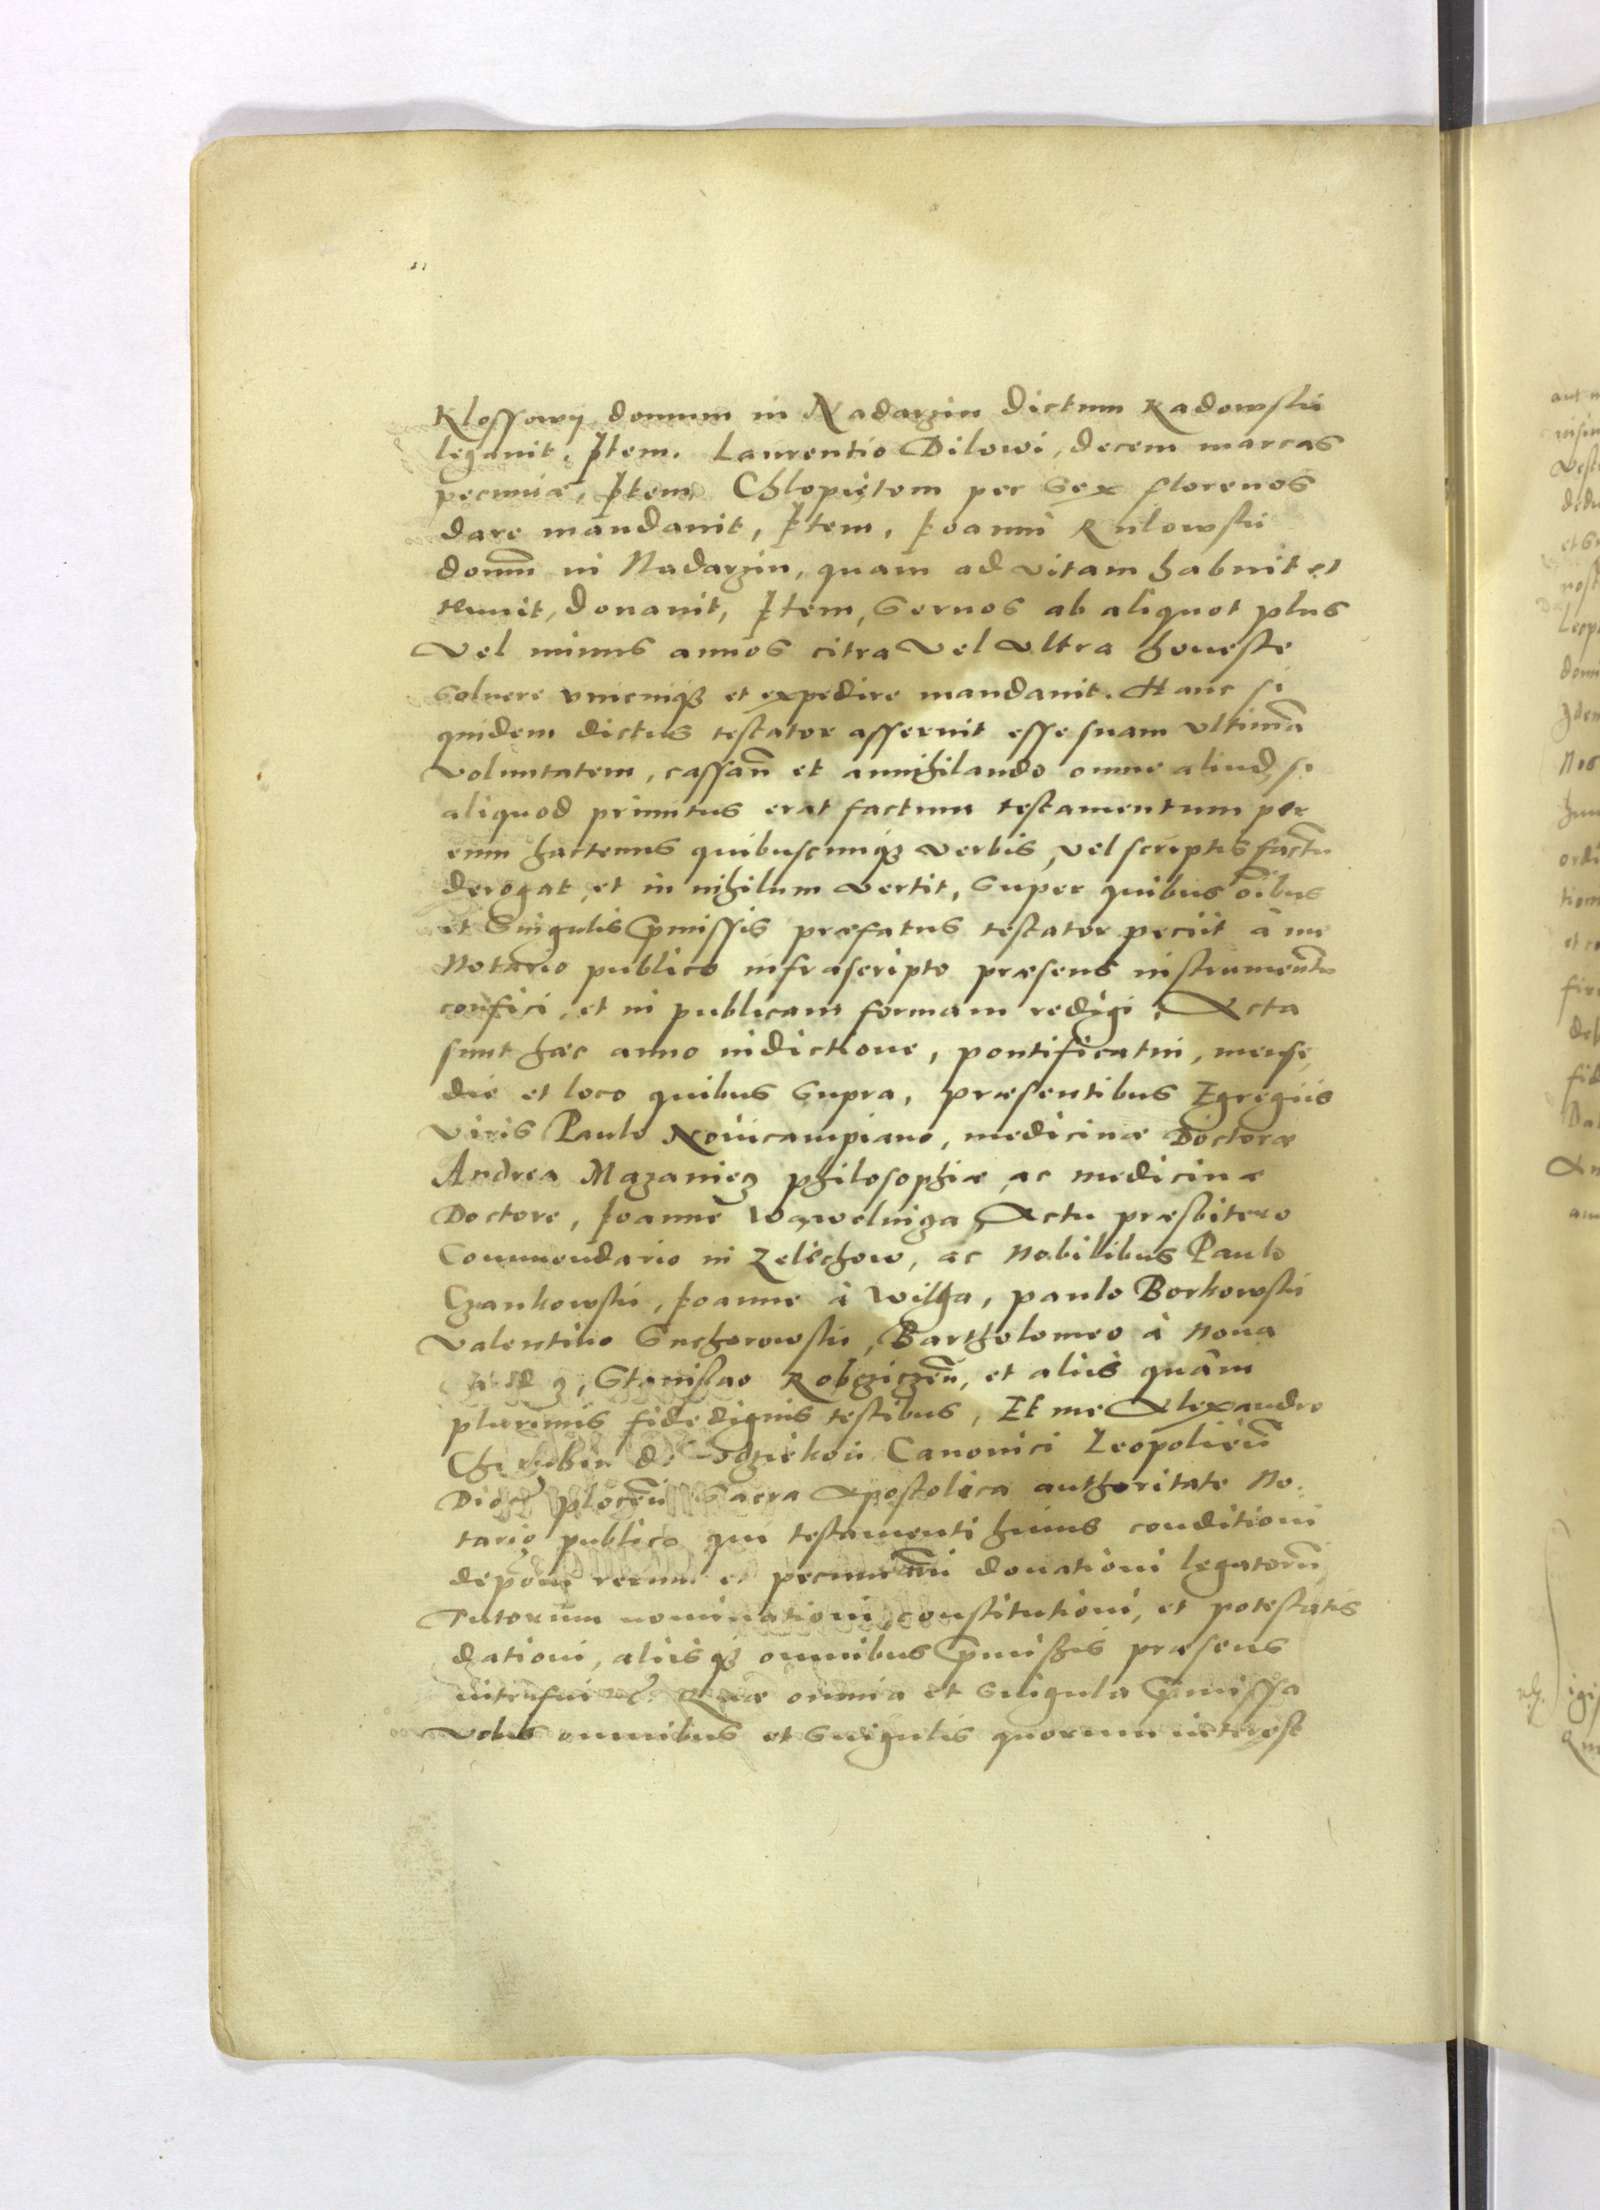 Klossowij domum in Nadarzin dictum Radowskii
legauit, Item. Laurentio Dilowi, decem marcas
pecuniæ, Item Chlopietom per sex florenos
dare mandauit, Item, Ioanni Kulowskii
domū in Nadarzin, quam ad vitam habuit et
tenuit, donauit, Item, seruos ab aliquot plus
vel minus annos citra vel vltra honeste
soluere vnicuiqz et expedire mandauit. Hanc si
quidem dictus testator asseruit esse suam vltimā
voluntatem, cassan̄ et annihilando omne aliud, si
aliquod primitus erat factum testamentum per
eum hactenus quibuscunqz verbis, vel scriptis factū
derogat et in nihilum vertit, super quibus oībus
et singulis p̄missis præfatus testator peciit à me
Notario publico infrascripto præsens instrumentū
confici, et in publicam formam redigi, Acta
sunt hæc anno indictione, pontificatui, mense,
die et loco quibus supra, præsentibus Egregiis
viris Paulo Nouicampiano, medicinæ Doctoræ
Andrea Mazaniecz philosophiæ ac medicinæ
Doctore, Ioanne Actu præsbitero
Commendario in Zelechow, ac Nobilibus Paulo
Czankowskii, Ioanne à Wilga, paulo Borkowskii
Valentino Suchorowskii, Bartholomeo à Noua
Stanislao Robcziczen̄, et aliis quàm
plurimis fidedignis testibus, Et me Alexandro
Cherubin de Canonici Leopolien̄
Dioc plocen̄ Sacra Apostolica authoritate No-
tario publico qui testamenti huius conditioni
deponi rerum et donationi legatorū
Tutorum nominationi, constitutioni, et potestatis
dationi, aliisqz omnibus p̄missis præsens
interfui Quæ omnia et singula p̄missa
vobis omnibus et singulis quorum interest